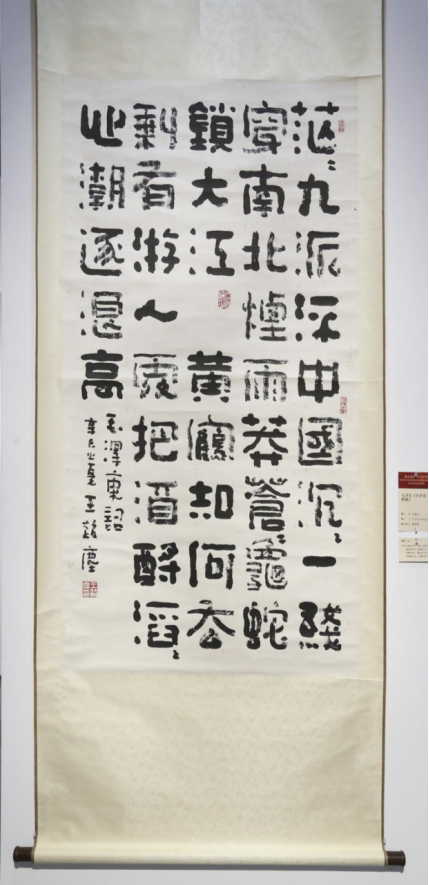 茫〻九派流中國沉〻一綫
穿南北煙雨莽蒼〻龜蛇
鎖大江 黃鶴知何去
剩有游人處把酒酹滔〻
心潮逐浪高
毛澤東詞